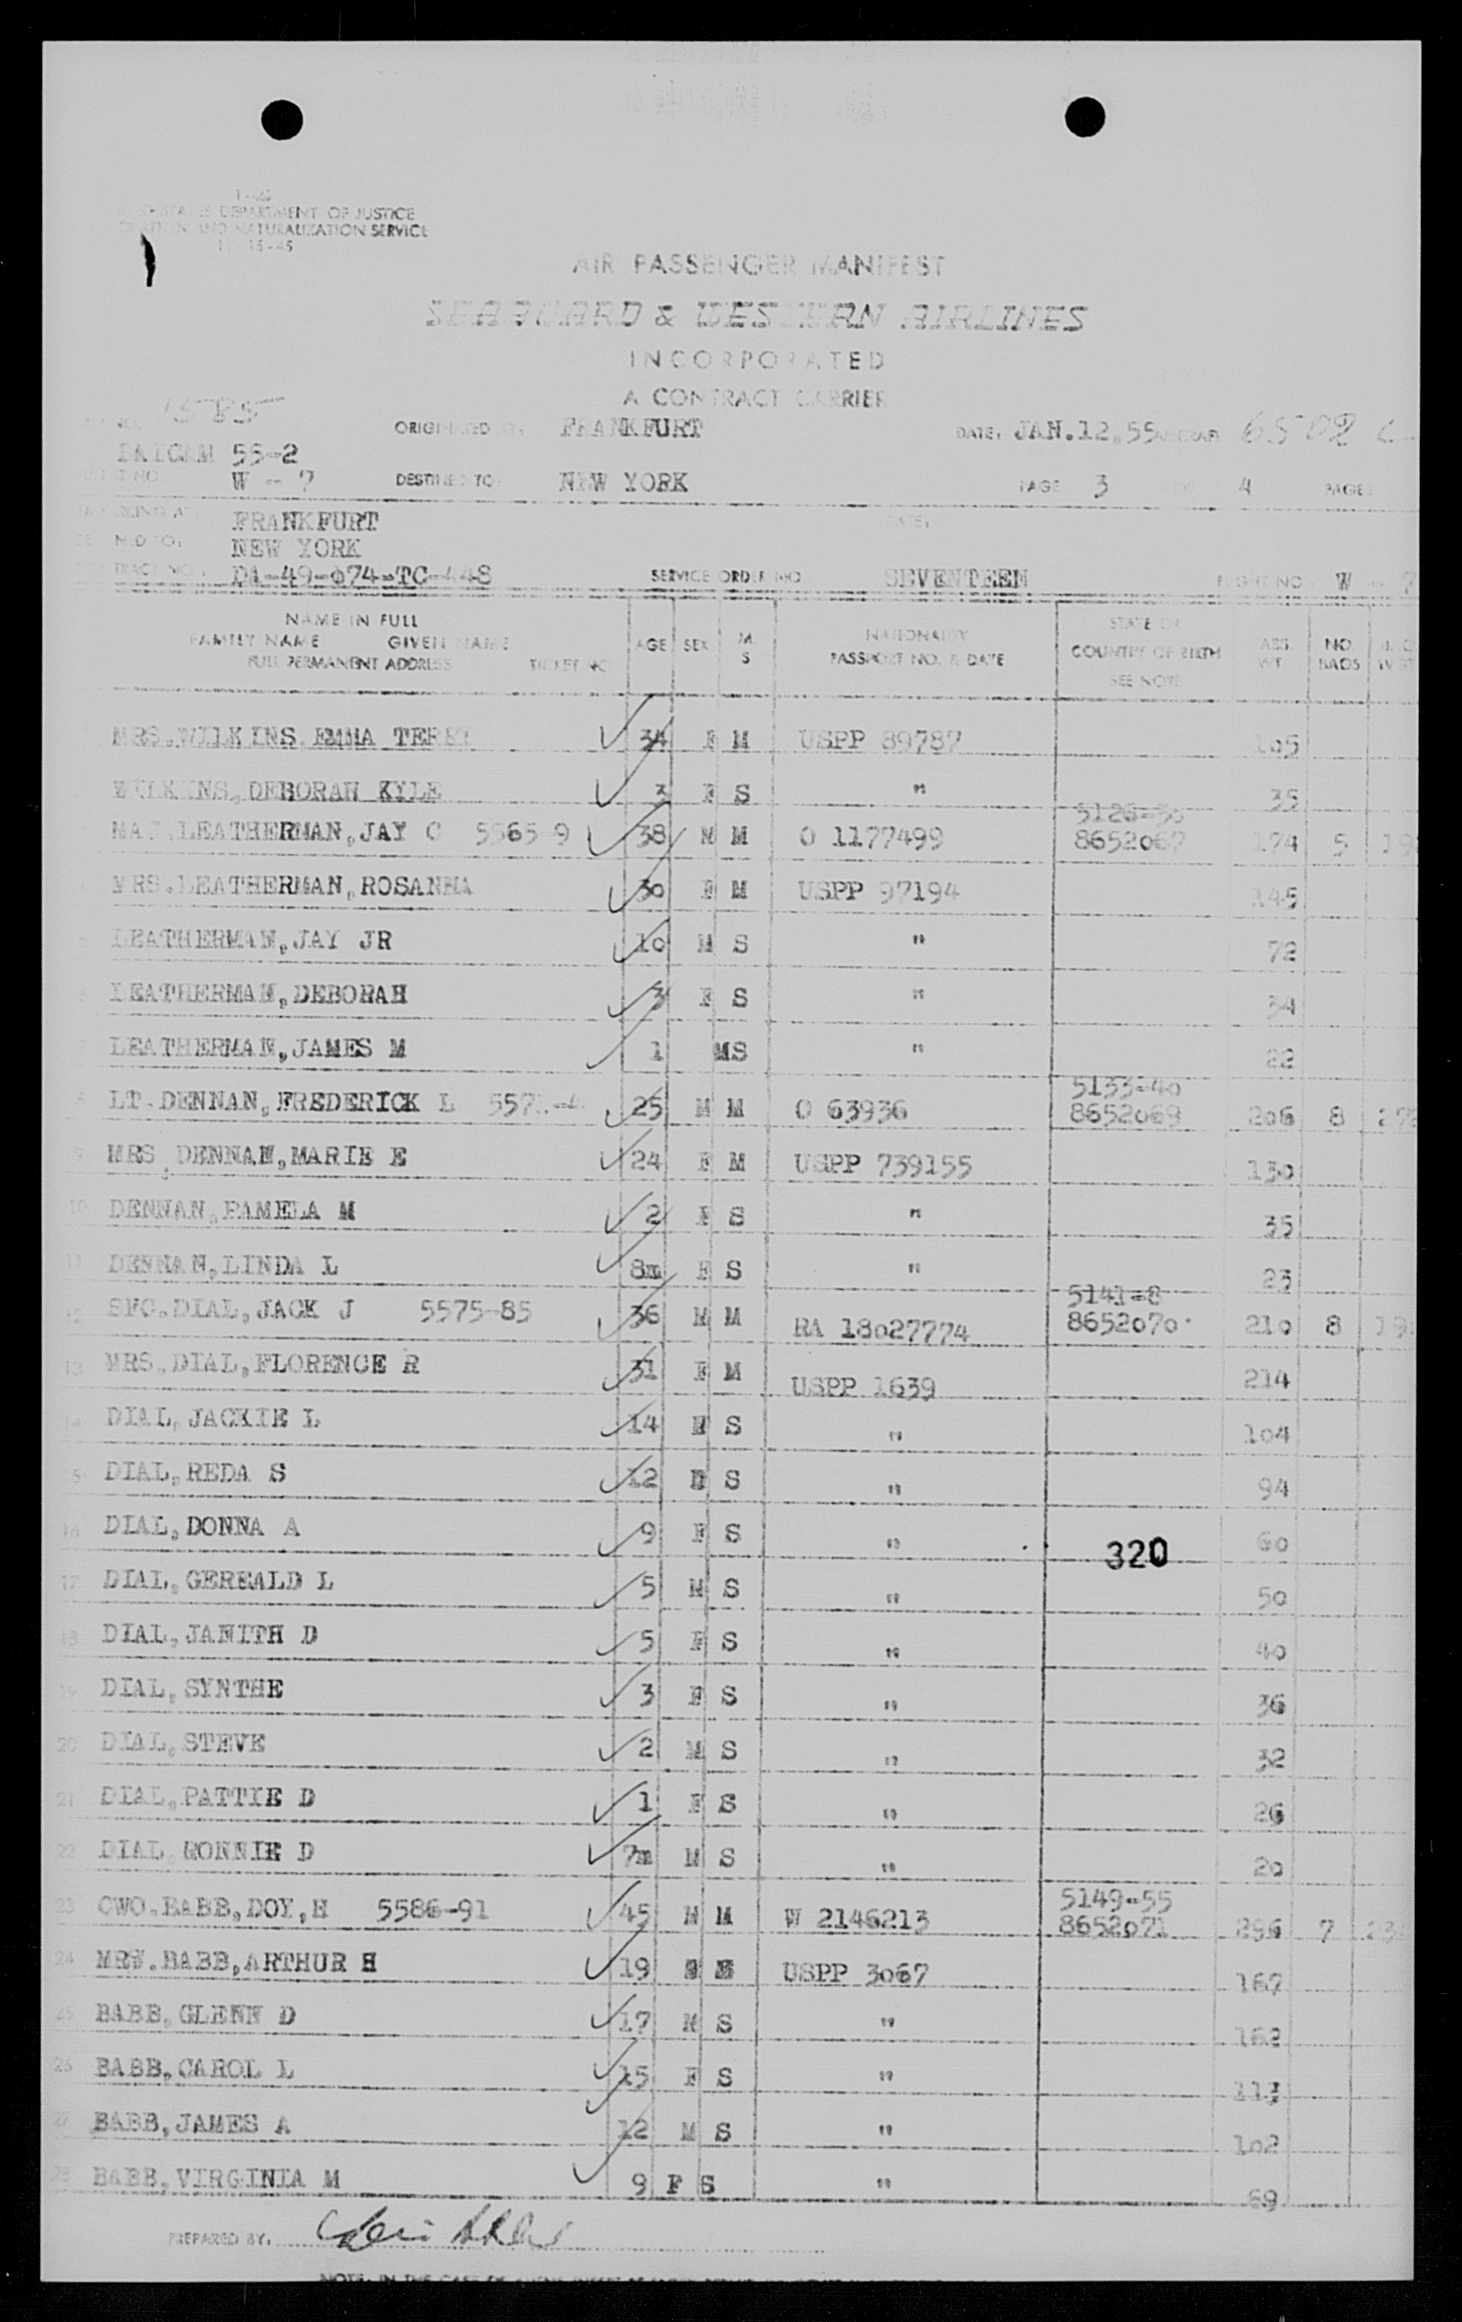 DEPARTMENT OF JUSTICE
AND NATURALIZATION SERVICE
AIR PASSENGER MANIFEST
SEABOARD & WESTERN AIRLINES
INCORPORATED
A CONTRACT CARRIER
ORIGINATED FRANKFURT DATE, JAN.12,55
55-2
W - 7 DESTINED TO NEW YORK PAGE 3 4 PAGES
FRANKFURT DATE,
NEW YORK
DA-49-074-TC-448 SERVICE ORDER NO SEVENTEEN FLIGHT NO W - 7
NAME IN FULL STATE OR
FAMILY NAME GIVEN NAME AGE SEX M NATIONALITY COUNTRY OF BIRTH NO.
FULL PERMANENT ADDRESS TICKET NO S PASSPORT NO. & DATE SEE NOTE WT BAGS
MRS.WILKINS EMMA TERRY 34 F M USPP 89787 105
WILKINS,DEBORAH KYLE 3 F S " 35
MAJ.LEATHERMAN,JAY C 5565 9 38 M M O 1177499 8652067 174 5
MRS.LEATHERMAN,ROSANNA 30 F M USPP 97194 145
LEATHERMAN,JAY JR 10 M S " 72
LEATHERMAN,DEBORAH 3 F S " 34
LEATHERMAN,JAMES M 1 MS " 22
5133-40
LT.DENNAN,FREDERICK L 25 M M O 63936 8652069 206 8
9 MRS DENNAN,MARIE E 24 F M USPP 739155 130
10 DENNAN,PAMELA M 2 F S " 35
11 DENNAN,LINDA L 8m F S " 23
5141-8
12 SFC.DIAL,JACK J 5575-85 36 M M RA 18027774 8652070 210 8
13 MRS.DIAL,FLORENCE R 31 F M USPP 1639 214
14 DIAL,JACKIE L 14 F S " 104
DIAL,REDA S 12 F S " 94
16 DIAL,DONNA A 9 F S " 60
320
17 DIAL,GEREALD L 5 M S " 50
18 DIAL,JANITH D 5 F S " 40
19 DIAL,SYNTHE 3 F S " 36
20 DIAL,STEVE 2 M S " 32
21 DIAL,PATTIE D 1 F S " 26
22 DIAL RONNIE D 7m M S " 20
5149-55
23 CWO.BABB,DOY,H 5586-91 45 M M W 2146213 8652071 296 7
24 MRS.BABB,ARTHUR H 19 USPP 3067 167
25 BABB,GLENN D 17 M S " 162
26 BABB,CAROL L 15 F S " 113
27 BABB,JAMES A 12 M S " 102
28 BABB,VIRGINIA M 9 F S " 69
PREPARED BY,